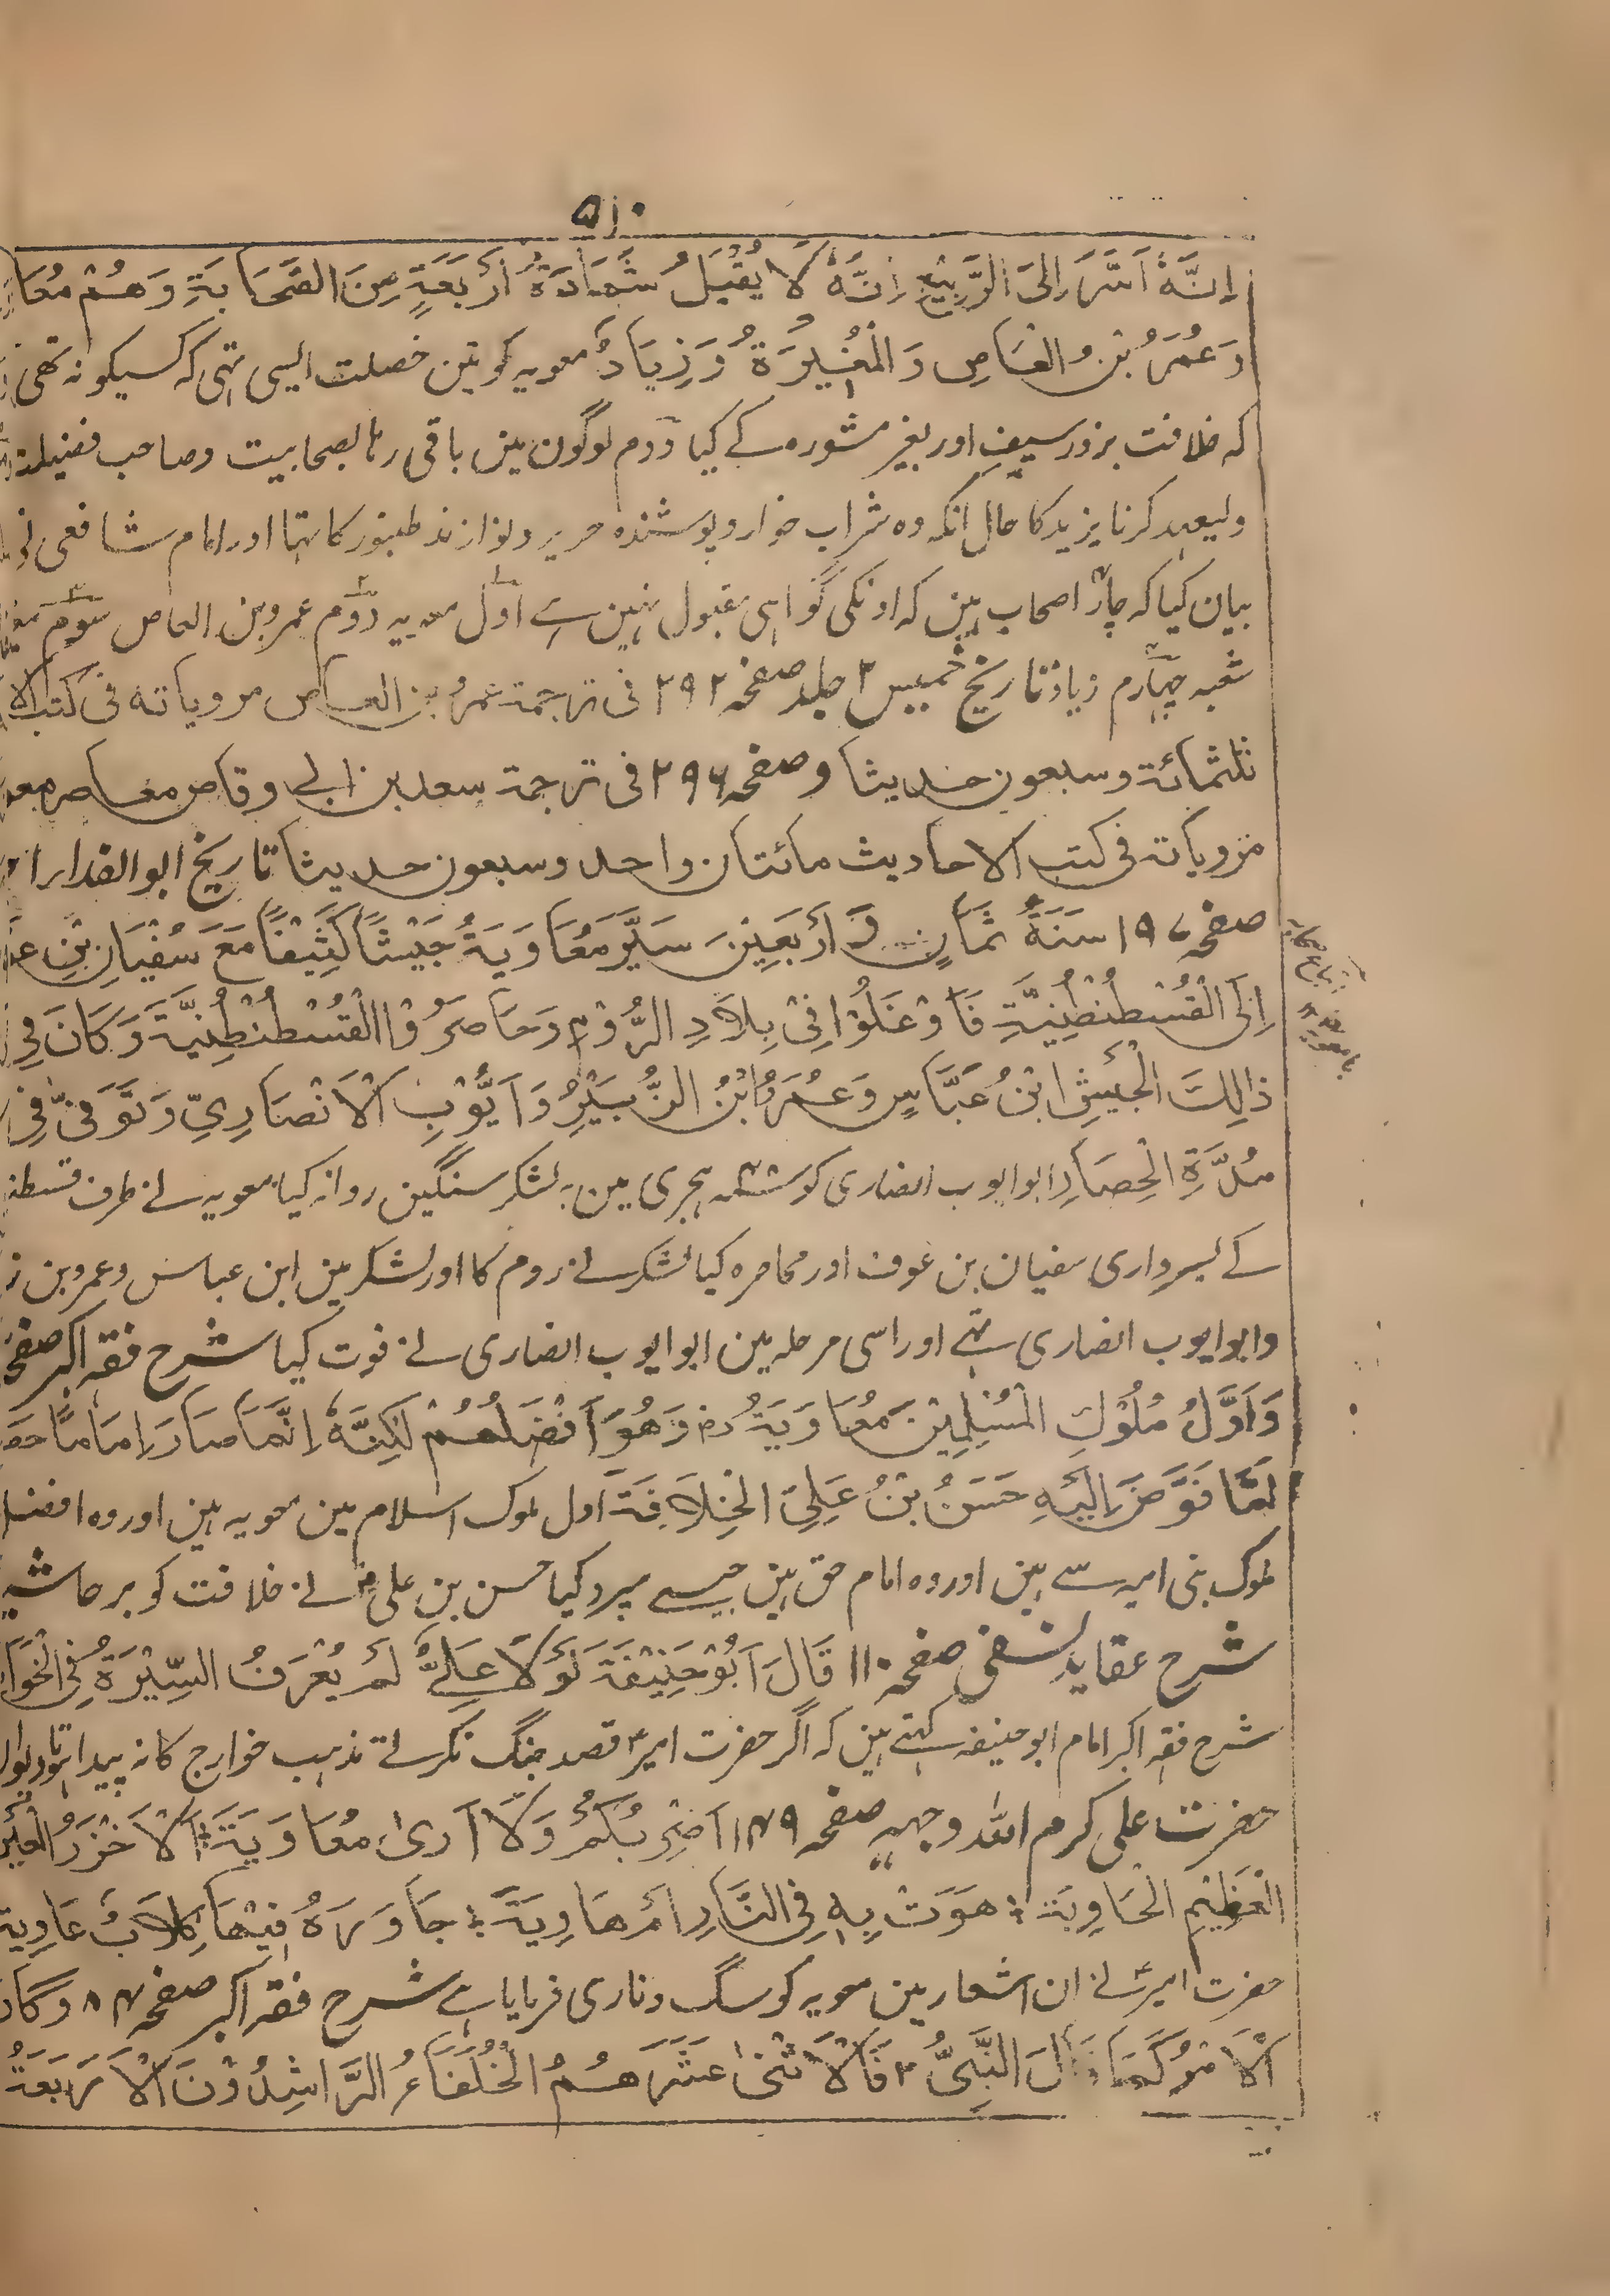 ۵۱۰
إِنَّهُ اَسَّرَ اِلَى الرَّبِيْعِ اِنَّهُ لَا يُقْبَلُ شَهَادَةُ أَرْبَعَةٍ مِنَ الصَّحَابَةِ وَهُمْ
وَعُمَرُ بْنُ الْعَاصِ وَالْمُغِيرَةُ وَزِيَادُ معویہ کو تین خصلت ایسی تہی کہ کسیکو نہ تہی
کہ خلافت بزور سیف اور بغیر مشورہ کے کیا دوم لوگون مین باقی رہا بصحابیت وصاحب فضیلت
ولیعہد کرنا یزید کا حال انکہ وہ شراب خوار و پوشندہ حریر و نوازندہ طنبور کا تہا اور امام شافعی نے
بیان کیا کہ چار اصحاب ہین کہ اونکی گواہی مقبول نہین ہے اول معویہ دوم عمرو بن العاص سوم
شعبہ چہارم زیاد تاریخ خمیس ۲ جلد صفحہ ۲۹۲ فی ترجمۃ عمرو بن العاص مرویاتہ فی کتب
ثلثمائۃ وسبعون حدیثا وصفحہ ۲۹۶ فی ترجمۃ سعد بن ابی وقاص معاصر
مرویاتہ فی کتب الاحادیث مائتان واحد وسبعون حدیثا تاریخ ابوالفدا
صفحہ ۱۹۶ سَنَةُ ثَمَانٍ وَ أَرْبَعِيْنَ سَيَّرَ مُعَاوِيَةُ جَيْشًا كَثِيْفًا مَعَ سُفْيَانِ بْنِ
اِلَى الْقُسْطُنْطُنِيَّةِ فَاَوْغَلُوْا فِيْ بِلَادِ الرُّوْمِ وَحَاصَرُوْا الْقُسْطُنْطُنِيَّةَ وَكَانَ فِي
ذَالِكَ الْجَيْشِ ابْنُ عَبَّاسٍ وَعُمَرُ ابْنُ الزُّبَيْرِ وَاَيُّوْبِ الْاَنْصَارِيّ وَتَوَفّٰى فِيْ
مُدَّةِ الْحِصَارِ ابو ایوب انصاری کو ہجری مین بہ لشکر سنگین روانہ کیا معویہ نے طرف
کے بسرداری سفیان بن عوف اور محاصرہ کیا لشکر نے روم کا اور لشکر مین ابن عباس وعمرو بن
وابو ایوب انصاری تہے اور اسی مرحلہ مین ابو ایوب انصاری نے فوت کیا شرح فقہ اکبر صفحہ
وَاَوَّلُ مُلُوْكِ الْمُسْلِمِيْنَ مُعَاوِيَةُ رض وَهُوَ اَفْضَلُهُمْ لٰكِنَّهُ اِنَّمَا صَارَ اِمَامًا
لَمَّا فَوَّضَ اِلَيْهِ حَسَنُ بْنُ عَلِيّ الْخِلَافَةَ اول ملوک اسلام مین معویہ ہین اور وہ افضل
ملوک بنی امیہ سے ہین اور وہ امام حق ہین جیسے سپرد کیا حسن بن علی نے خلافت کو بر حاشیہ
شرح عقاید نسفی صفحہ ۱۱۰ قَالَ اَبُوْ حَنِيْفَةَ لَوْ لَا عَلِيٌّ لَمْ يُعْرَفُ السِّيْرَةُ فِي
شرح فقہ اکبر امام ابو حنیفہ کہتے ہین کہ اگر حضرت امیرؑ قصد جنگ نکرتے مذہب خوارج کا نہ پیدا ہوتا
حضرت علی کرم اللہ وجہہ صفحہ ۱۴۹ اَضْرِبُكُمْ وَلَا اَرٰى مُعَاوِيَةَ اَلْاَخْزَرُ
الْعَظِيْمِ الْحَاوِيَة هَوَتْ بِهٖ فِي النَّارِ اُمّ هَاوِيَة جَاوَرَهُ فِيْهَا كِلَابٌ عَاوِيَة
حضرت امیرؑ نے ان اشعار مین معویہ کو سگ و ناری فرمایا ہے شرح فقہ اکبر صفحہ ۸۴ وكان
الْاَمْرُ كَمَا قَالَ النَّبِيُّ فَالْاِثْنٰى عَشَرَ هُمُ الْخُلَفَاءُ الرَّاشِدُوْنَ الْاَرْبَعَةُ